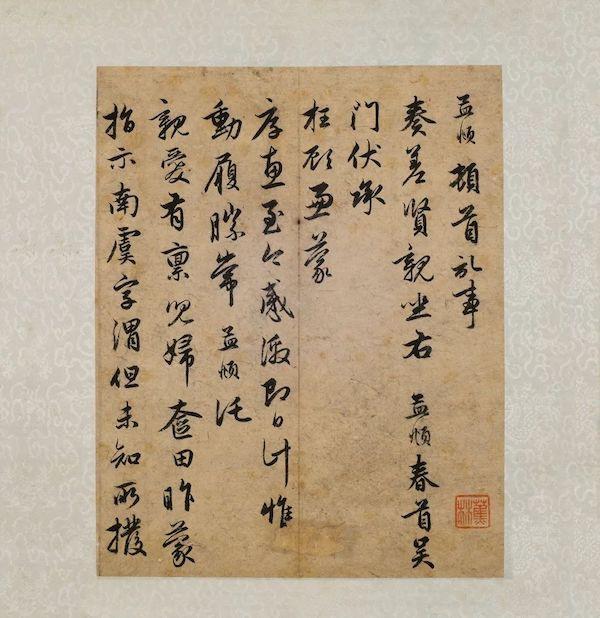 孟頫頓首記事
奏差賢親坐右 孟頫春首吴
門伏承
枉顧重蒙
厚惠至今感激即日計惟
動履勝常孟頫託
親愛有稟兒婦奩田昨蒙
指示南虞字渭但未知所撥
蕉林